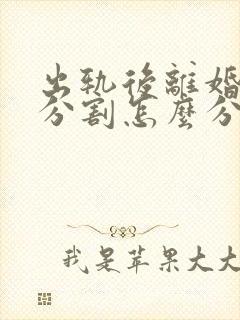 出軌後離婚
分割怎麼分
我是苹果大大